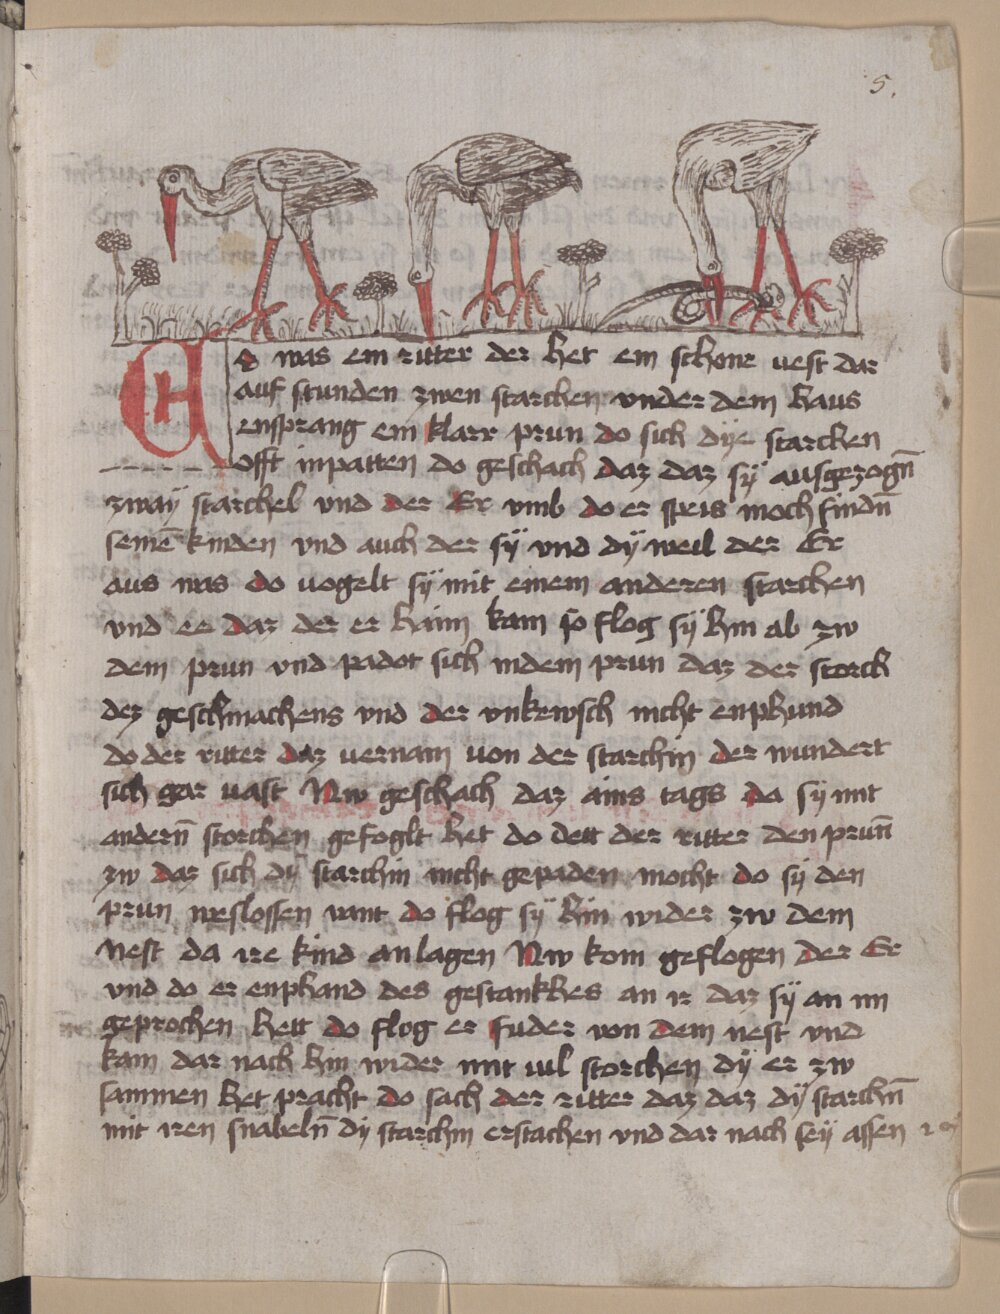 5.
Ed was ein ritter der het ein schone vest dar
auf stunden zwen starchen vnder dem haus
ensprang ein klarr prun do sich dÿe starcken
offt inpatten do geschach daz daz sÿ ausgezogn̄
zwaÿ starchel vnd der Er vmb do er speis moch findn̄
seinē kinden vnd auch der sÿ vnd dÿ weil der Er
aus was do vogelt sÿ mit einem anderen starchen
vnd ee daz der er haim kam so flog sÿ hin ab zw
dem prun vnd padot sich indem prun daz der storch
dez geschmachens vnd der vnkewsch nicht enphund
do der ritter daz vernam von der starchin der wundert
sich gar vast Nw geschach daz ains tags da sÿ mit
andern̄ storchen gefoglt het do dett der ritter den prun̄
zw daz sich dÿ starchin nicht gepaden mocht do sÿ den
prun weslossen vant do flog sÿ hin wider zw dem
nest da ire kind an lagen Nw kom geflogen der Er
vnd do er enphand des gestankhes an ir daz sÿ an im
geprochen hett do flog er fuder von dem nest vnd
kam dar nach hin wider mit vil storchen dÿ er zw
sammen het pracht do sach der ritter daz daz dÿ starchn̄
mit iren snabeln̄ dÿ starchin erstachen vnd dar nach seÿ assen